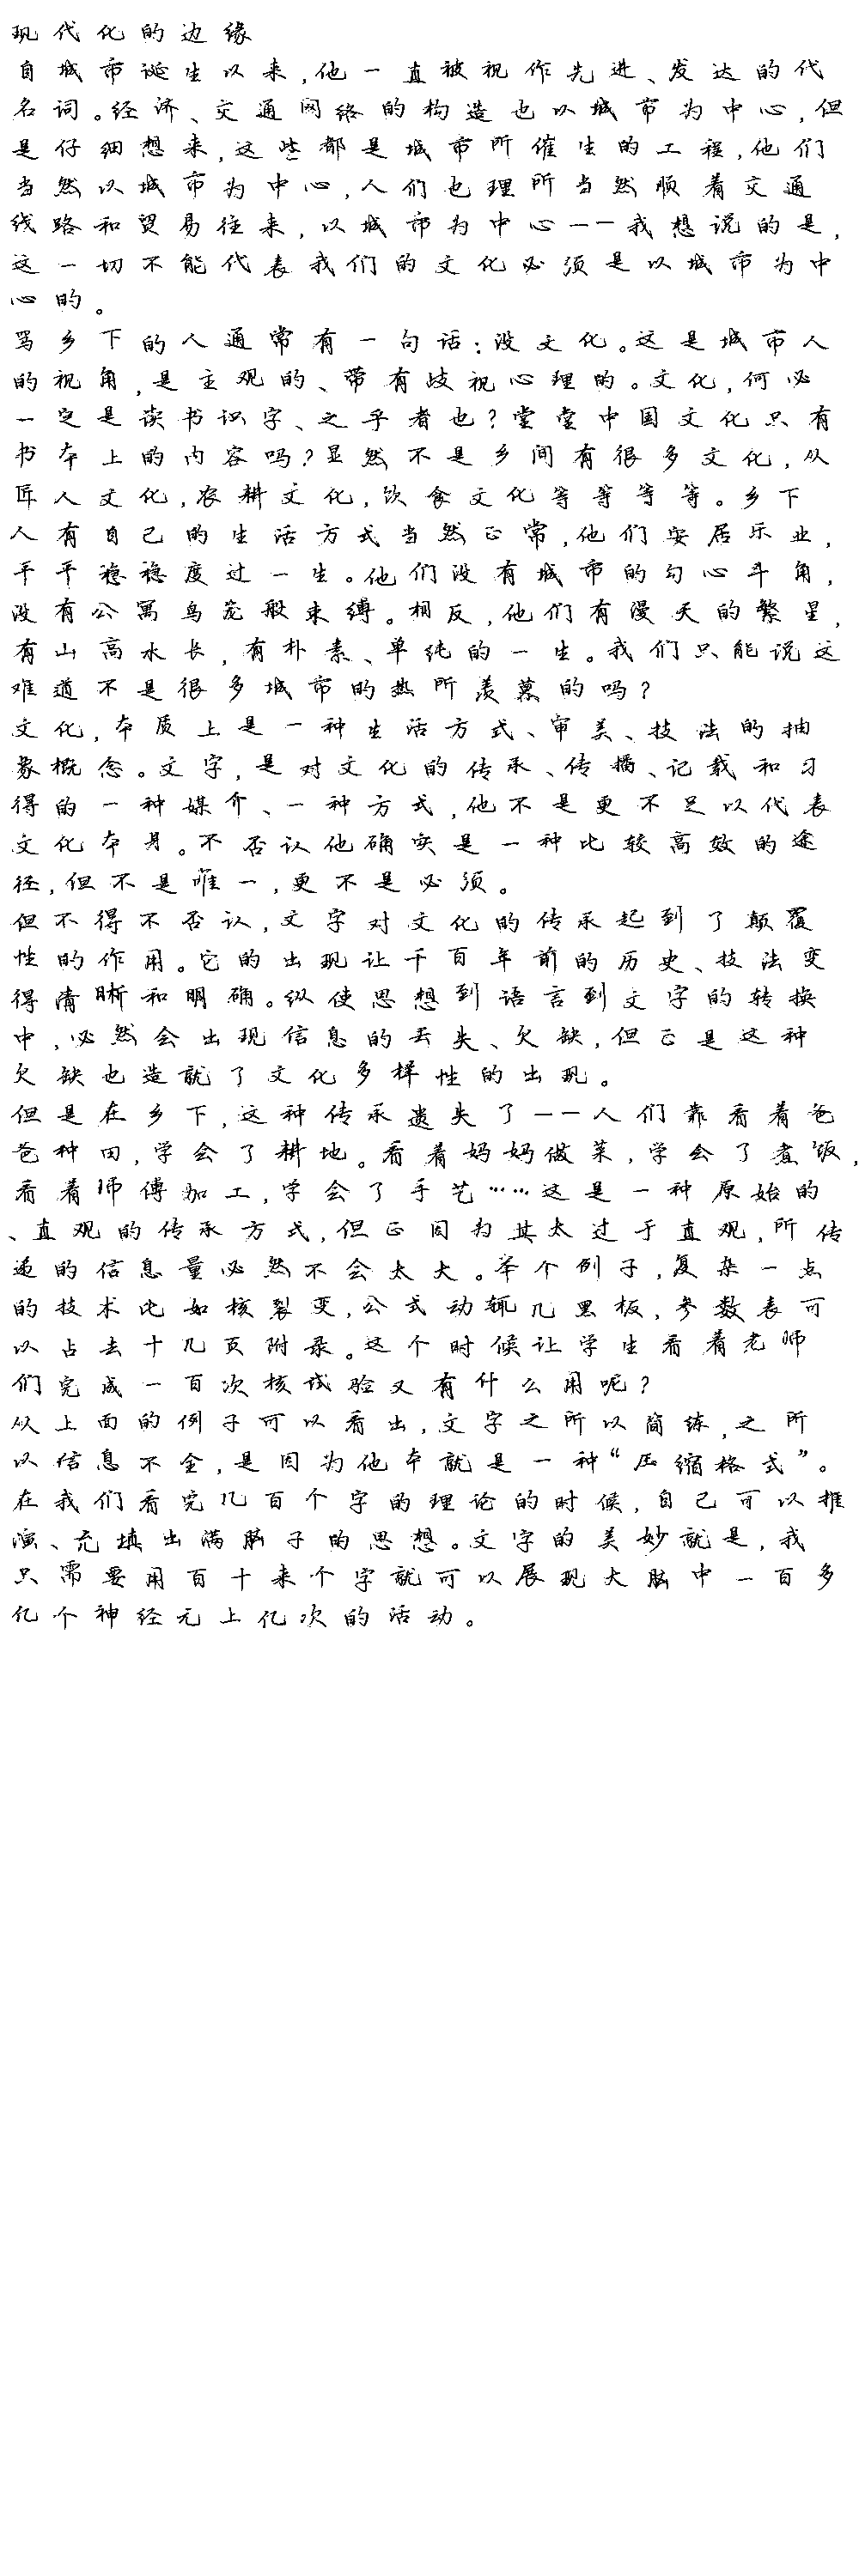 现代化的边缘
自城市诞生以来,他一直被视作先进、发达的代
名词。经济、交通网络的构造也以城市为中心,但
是仔细想来,这些都是城市所催生的工程,他们
当然以城市为中心,人们也理所当然顺着交通
线路和贸易往来,以城市为中心——我想说的是,
这一切不能代表我们的文化必须是以城市为中
心的。
骂乡下的人通常有一句话:没文化。这是城市人
的视角,是主观的、带有歧视心理的。文化,何必
一定是读书识字、之乎者也?堂堂中国文化只有
书本上的内容吗?显然不是乡间有很多文化,从
匠人文化,农耕文化,饮食文化等等等等。乡下
人有自己的生活方式当然正常,他们安居乐业,
平平稳稳度过一生。他们没有城市的勾心斗角,
没有公寓鸟笼般束缚。相反,他们有漫天的繁星,
有山高水长,有朴素、单纯的一生。我们只能说这
难道不是很多城市的热所羡慕的吗?
文化,本质上是一种生活方式、审美、技法的抽
象概念。文字,是对文化的传承、传播、记载和习
得的一种媒介、一种方式,他不是更不足以代表
文化本身。不否认他确实是一种比较高效的途
径,但不是唯一,更不是必须。
但不得不否认,文字对文化的传承起到了颠覆
性的作用。它的出现让千百年前的历史、技法变
得清晰和明确。纵使思想到语言到文字的转换
中,必然会出现信息的丢失、欠缺,但正是这种
欠缺也造就了文化多样性的出现。
但是在乡下,这种传承遗失了——人们靠看着爸
爸种田,学会了耕地。看着妈妈做菜,学会了煮饭,
看着师傅加工,学会了手艺……这是一种原始的
、直观的传承方式,但正因为其太过于直观,所传
递的信息量必然不会太大。举个例子,复杂一点
的技术比如核裂变,公式动辄几黑板,参数表可
以占去十几页附录。这个时候让学生看着老师
们完成一百次核试验又有什么用呢?
从上面的例子可以看出,文字之所以简练,之所
以信息不全,是因为他本就是一种“压缩格式”。
在我们看完几百个字的理论的时候,自己可以推
演、充填出满脑子的思想。文字的美妙就是,我
只需要用百十来个字就可以展现大脑中一百多
亿个神经元上亿次的活动。